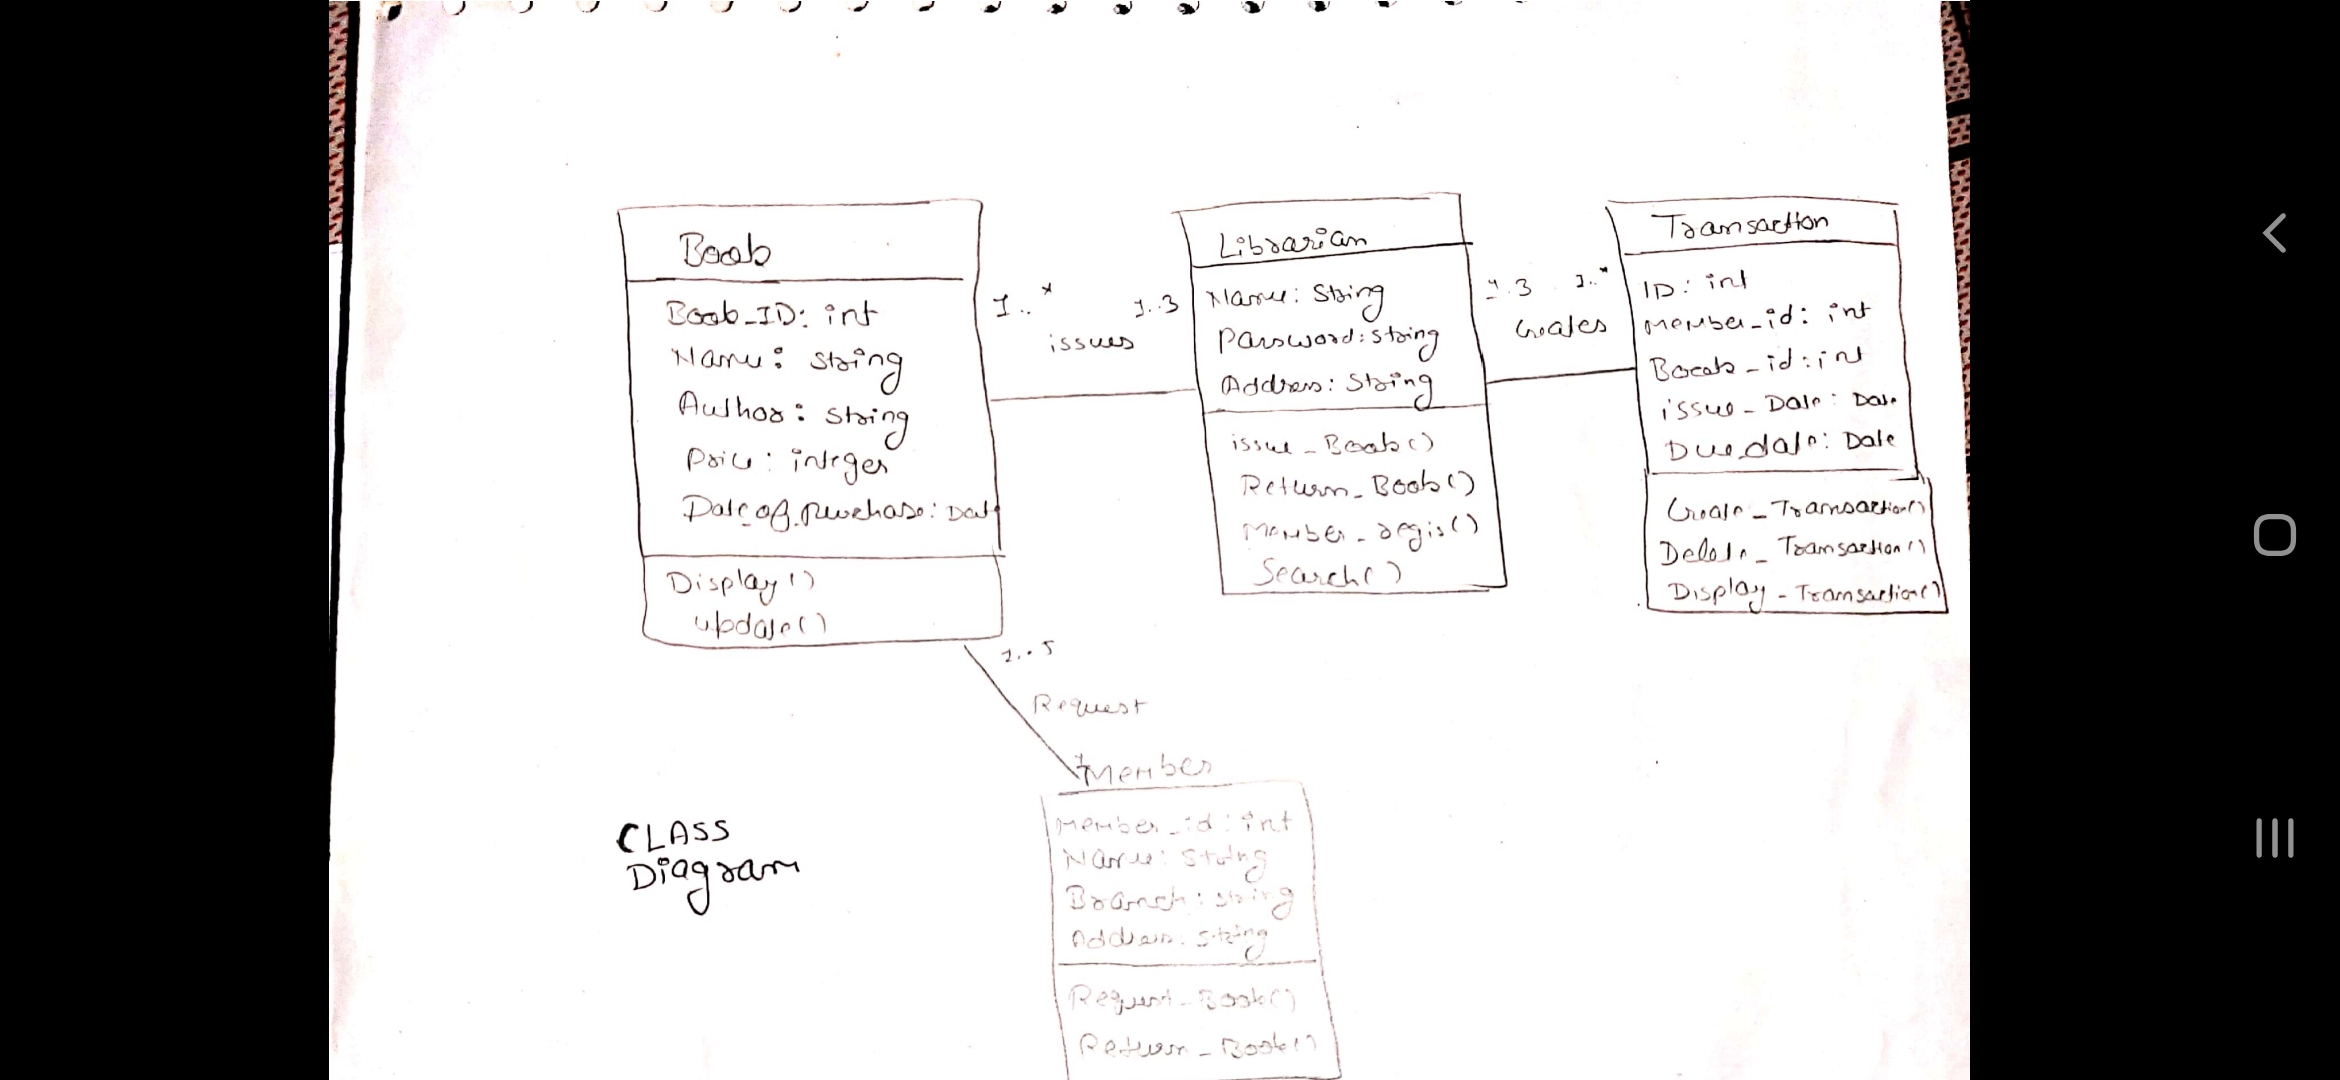 Book
Book_ID: int
Name: string
Author: string
Price: integer
Date_of_purchase: Date
Display()
update()
1..*
issues
1..3
Librarian
Name: String
Password: string
Address: String
issue_Book()
Return_Book()
Member_regis()
Search()
1..3
1..*
Creates
Transaction
ID: int
Member_id: int
Book_id: int
issue_Date: Date
Due_date: Date
Create_Transaction()
Delete_Transaction()
Display_Transaction()
1..5
Request
1
Member
Member_id: int
Name: String
Branch: string
Address: String
Request_Book()
Return_Book()
CLASS
Diagram